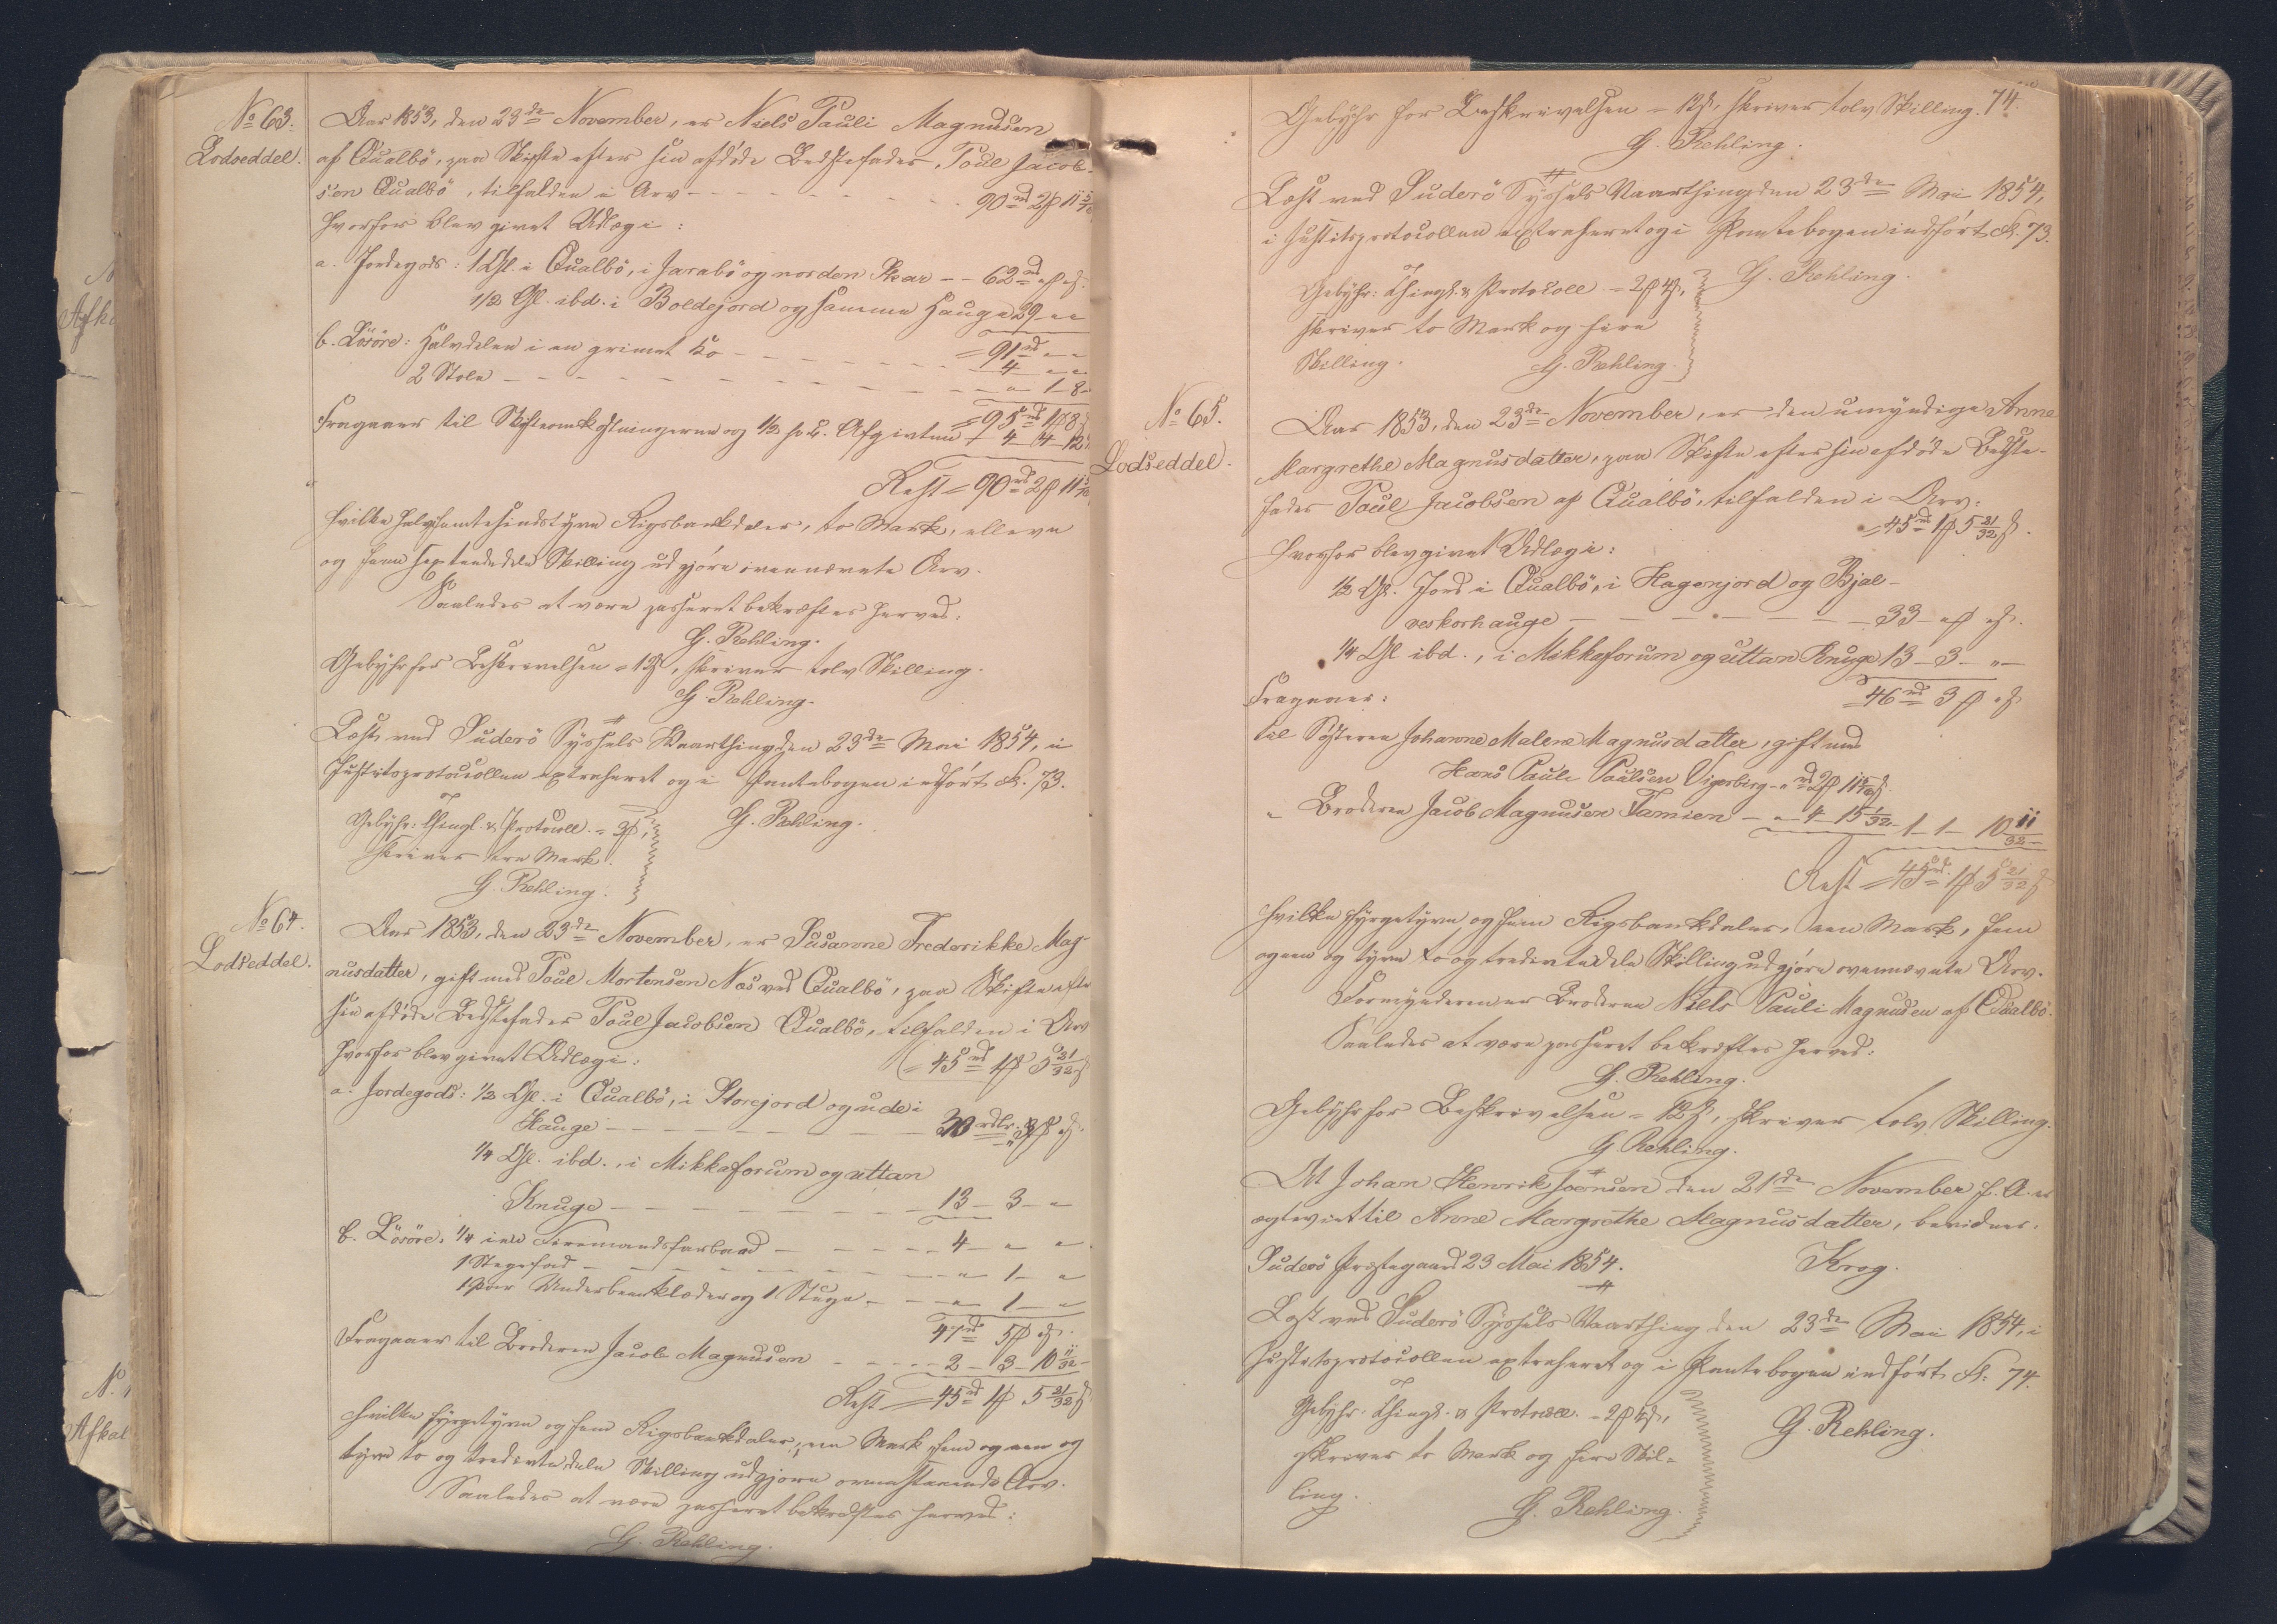 No 63.
Lodseddel.
Aar 1853, den 23de November, er Niels Pauli Magnusen
af Qualbö, paa Skifte efter sin afdöde Bedstefader, Poul Jacob-
sen Qualbö, tilfalden i Arv - - - 90 rd 2 ℔ 11 5/16
hvorfor blev givet Udlæg i:
a. Jordegods: 1 Gl. i Qualbö, i Jarabö og norden Skar - - 62 rd " ℔ " ß.
1/2 Gl. ibd. i Boldejord og samme Hauge 29 - " "
= 91 rd " "
b. Lösöre: Halvdelen i en grimet Ko - - - 4 - " "
2 Stole - - - " 1 - 8 -
= 95 rd 1 ℔ 8 ß
Fragaaer til Skifteomkostningerne og 1/2 p C. Afgiften 4 - 4 - 12
Rest = 90 rd 2 ℔ 11
hvilke halvfemtesindstyve Rigsbankdaler, to Mark, elleve
og fem sextendedele Skilling udgjöre ovennævnte Arv.
Saaledes at være passeret bekræftes herved:
G. Rehling.
Gebyhr for Beskrivelsen = 12 ß, skriver tolv Skilling.
G. Rehling.
Læst ved Suderö Syssels Vaarthing den 23de Mai 1854, i
Justitsprotocollen extraheret og i Pantebogen indfört Fol. 73.
Gebyhr: Thingl. & Protocoll. = 3 ℔,
skriver tre Mark.
G. Rehling.
G. Rehling.
No 64.
Lodseddel.
Aar 1853, den 23de November, er Susanne Frederikke Mag-
nusdatter, gift med Poul Mortensen Næs ved Qualbö, paa Skifte efter
sin afdöde Bedstefader Poul Jacobsen Qualbö, tilfalden i Arv
(= 45 rd 1 ℔ 5 21/32 ß
hvorfor blev givet Udlæg i:
a. Jordegods: 1/2 Gl. i Qualbö, i Storejord og ude i
Hauge - - - 30 rdlr. ℔ " ß.
1/4 Gl. ibd., i Mikkaforum og uttan
Knuge - - - 13 - 3 - "
b. Lösöre: 1/4 i en Firemandsfarbaad - - - 4 - " "
1 Stegefad - - - " 1 - "
1 Par Underbeenklæder og 1 Stuge - - " 1 - "
47 rd 5 ℔ " ß.
Fragaaer til Broderen Jacob Magnusen - - - 2 - 3 - 10 11/32 -
Rest = 45 rd 1 ℔ 5 21/32 ß
hvilke fyrgetyve og fem Rigsbankdaler, een Mark, fem og een og
tyve to og tredivtedele Skilling udgjöre ovenstaaende Arv.
Saaledes at være passeret bekræftes herved:
G. Rehling.
74.
Gebyhr for Beskrivelsen = 12 ß, skriver tolv Skilling.
G. Rehling.
Læst ved Suderö Syssels Vaarthing den 23de Mai 1854,
i Justitsprotocollen extraheret og i Pantebogen indfört Fol. 73.
Gebyhr: Thingl. & Protocoll. = 2 ℔ 4 ß,
skriver to Mark og fire
Skilling.
G. Rehling.
G. Rehling.
No 65.
Lodseddel.
Aar 1853, den 23de November, er den umyndige Anne
Margrethe Magnusdatter, paa Skifte efter sin afdöde Bedste-
fader Poul Jacobsen af Qualbö, tilfalden i Arv:
= 45 rd 1 ℔ 5 21/32 ß.
hvorfor blev givet Udlæg i:
1/2 Gl. Jord i Qualbö, i Hagenjord og Bjal-
veskorhauge - - - 33 - " ℔ " ß.
1/4 Gl ibd., i Mikkaforum og uttan Knuge 13 - 3 - " -
= 46 rd 3 ℔ " ß
Fragaaer:
til Sösteren Johanne Malene Magnusdatter, gift med
Hans Pauli Poulsen Vigerberg - " rd 2 ℔ 11 ß
" Broderen Jacob Magnusen Famien - " 4 - 15 1/32 - 1 - 1 - 10 11/32 -
Rest = 45 rd 1 ℔ 5 21/32 ß
hvilke fyrgetyve og fem Rigsbankdaler, een Mark, fem
og een og tyve to og tredivtedele Skilling udgjöre ovennævnte Arv.
Formynderen er Broderen Niels Pauli Magnusen af Qualbö.
Saaledes at være passeret bekræftes herved:
G. Rehling.
Gebyhr for Beskrivelsen = 12 ß, skriver tolv Skilling.
G. Rehling.
At Johan Henrik Joensen den 21de November f. A. er
ægteviet til Anne Margrethe Magnusdatter, bevidnes.
Suderö Præstegaard 23 Mai 1854.
Krog.
Læst ved Suderö Syssels Vaarthing den 23de Mai 1854, i
Justitsprotocollen extraheret og i Pantebogen indfört Fol. 74.
Gebyhr. Thingl. & Protocoll. = 2 ℔ 4 ß,
skriver to Mark og fire Skil-
ling.
G. Rehling.
G. Rehling.